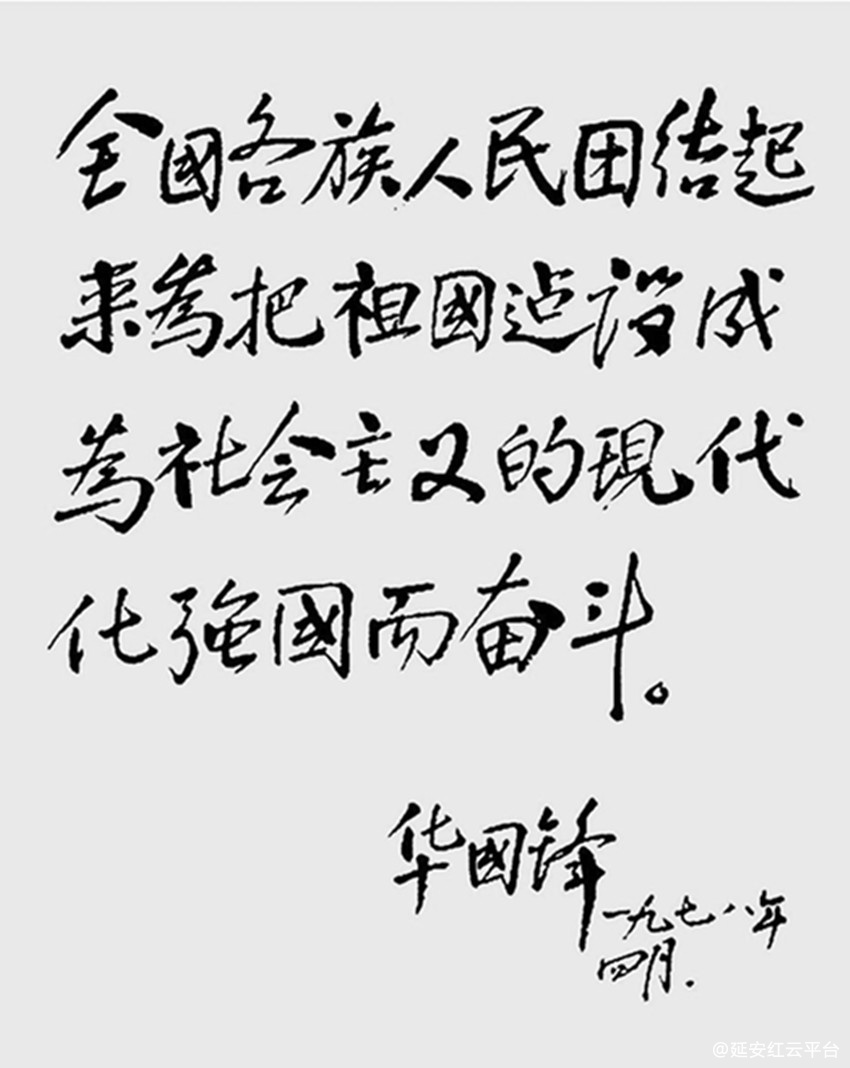 全國各族人民团结起
来為把祖國建设成
為社会主义的現代
化强國而奋斗。
华國锋
一九七八年
四月.
@延安红云平台